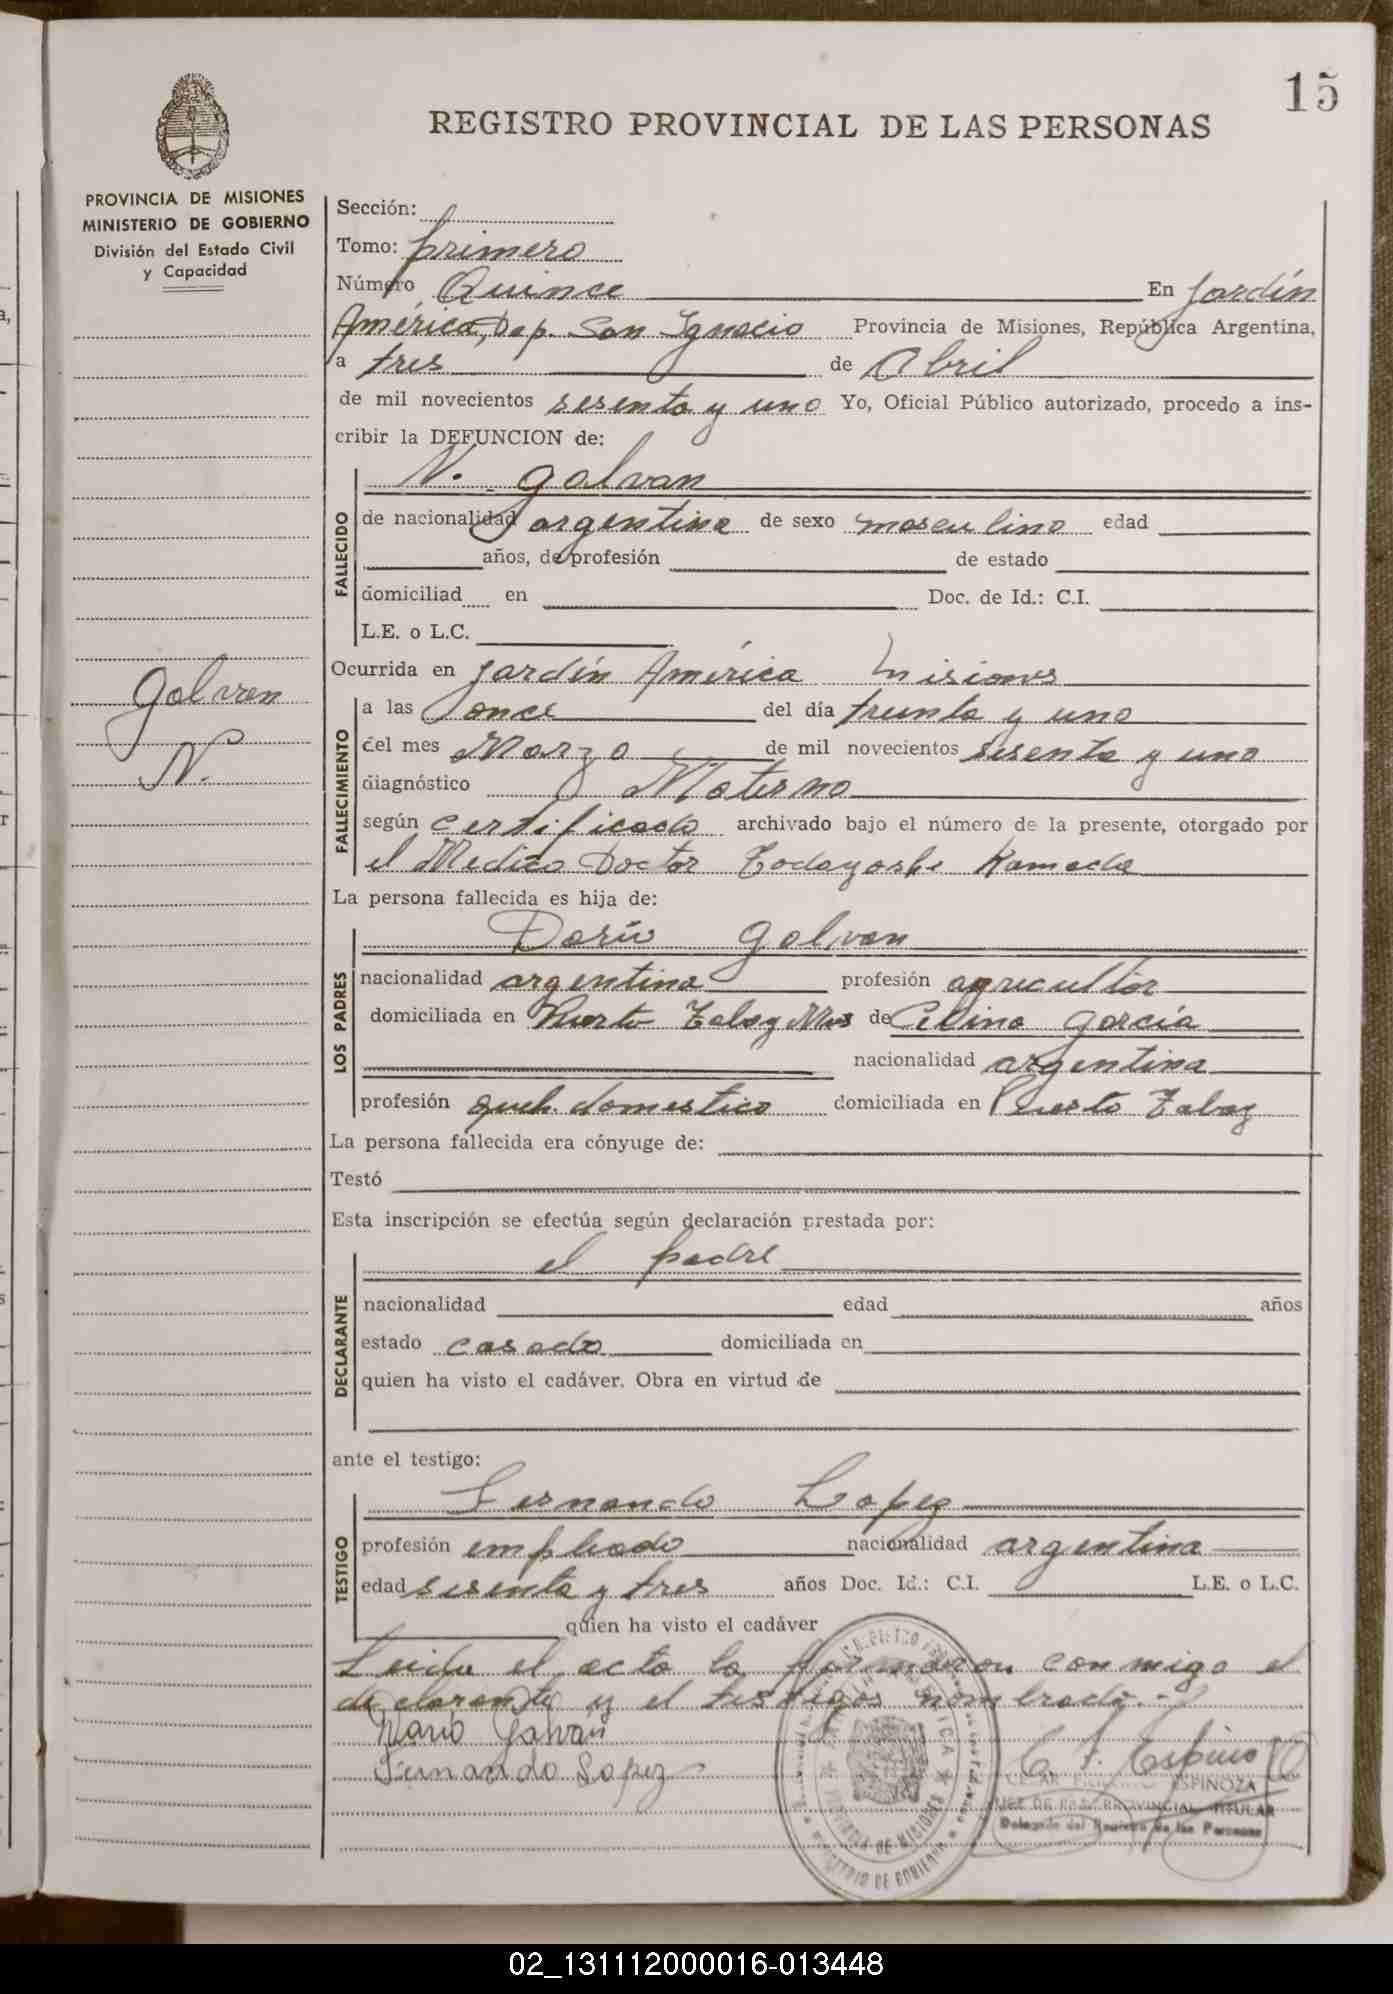 15
REGISTRO PROVINCIAL DE LAS PERSONAS
PROVINCIA DE MISIONES
MINISTERIO DE GOBIERNO
División del Estado Civil
y Capacidad
Sección:
Tomo: primero
Número Quince En Jardín
América, Dep. San Ignacio Provincia de Misiones, República Argentina,
a tres de Abril
de mil novecientos sesenta y uno Yo, Oficial Público autorizado, procedo a ins-
cribir la DEFUNCION de:
N. Galvan
FALLECIDO
de nacionalidad argentina de sexo masculino edad
años, de profesión de estado
domiciliad en Doc. de Id.: C.I.
L.E. o L.C.
Galvan
N.
Ocurrida en Jardín América Misiones
FALLECIMIENTO
a las once del día treinta y uno
del mes Marzo de mil novecientos sesenta y uno
diagnóstico Materno
según certificado archivado bajo el número de la presente, otorgado por
el Medico Doctor Kameda
La persona fallecida es hija de:
LOS PADRES
Galvan
nacionalidad argentina profesión agricultor
domiciliada en Puerto Tabay Mnes de Celina García
nacionalidad argentina
profesión queh. domestico domiciliada en Puerto Tabay
La persona fallecida era cónyuge de:
Testó
Esta inscripción se efectúa según declaración prestada por:
DECLARANTE
el padre
nacionalidad edad años
estado casado domiciliada en
quien ha visto el cadáver. Obra en virtud de
ante el testigo:
TESTIGO
Fernando Lopez
profesión empleado nacionalidad argentina
edad sesenta y tres años Doc. Id.: C.I. L.E. o L.C.
quien ha visto el cadáver
Leida el acta la firmaron conmigo el
declarante y el testigos nombrado.-
Galván
Fernando Lopez
C. F. Espinoza
CESAR ESPINOZA
JUEZ DE PAZ PROVINCIAL TITULAR
Delegado del Registro de las Personas
PROVINCIA DE MISIONES
MINISTERIO DE GOBIERNO
02_131112000016-013448